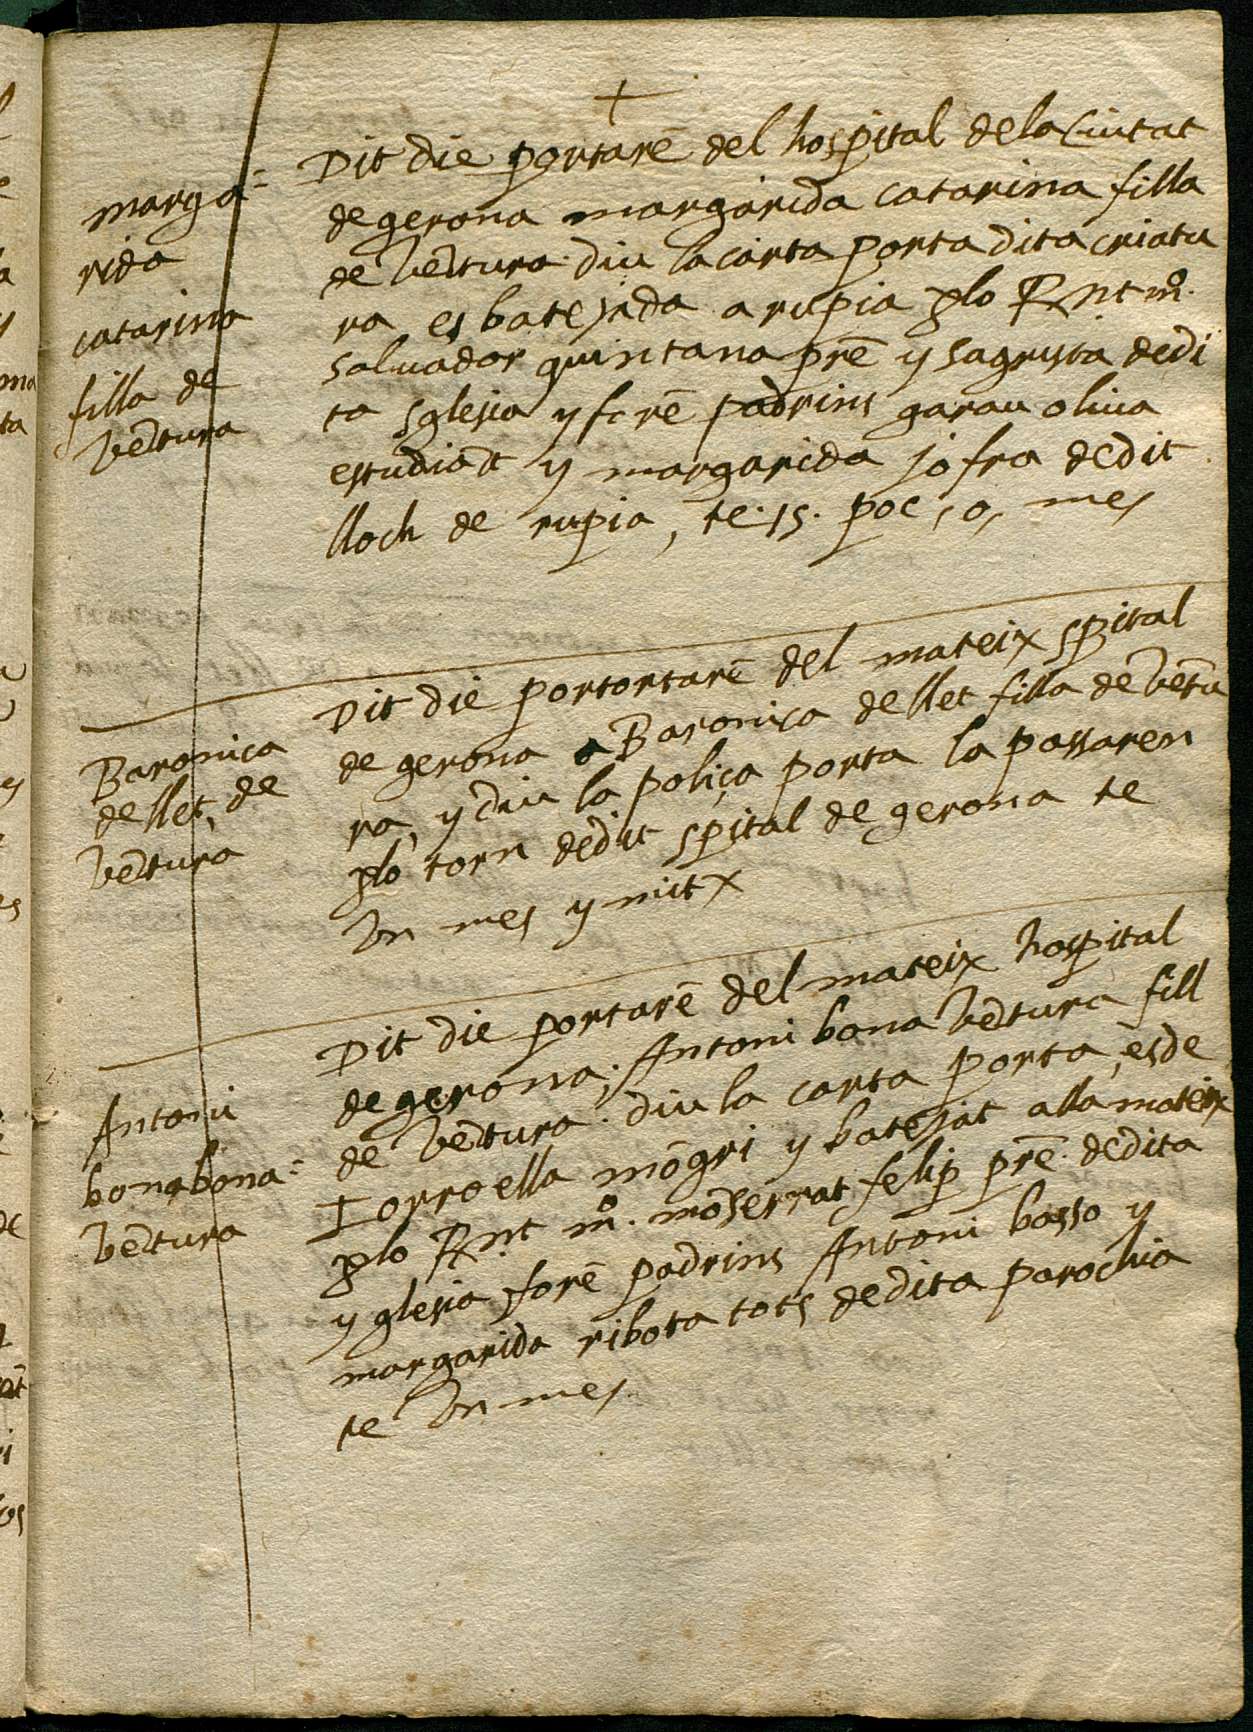 +
marga=
rida
catarina
filla de
vētura
Dit die portarē del hospital de la Ciutat
de gerona margarida catarina filla
de vētura. diu la carta porta dita criatu
ra es batejada a rupia plo Rnt mº.
saluador quintana prē y sagrista de di
ta sglesia y forē padrins garau oliua
estudiāt y margarida jofra de dit
lloch de rupia, te. 15. poc, o, mes
Baronica
de llet, de
vētura
Dit die portortarē del mateix spital
de gerona a Baronica de llet filla de vētu
ra, y diu la poliça porta la passaren
plo torn de dit spital de gerona te
vn mes y mitx
Antoni
bonabona=
vētura
Dit die portarē del mateix hospital
de gerona; Antoni bona vētura fill
de vētura. diu la carta porta, es de
Torroella mōgri y batejat alla mateix
plo Rnt mº. mōserrat felip prē. de dita
yglesia forē padrins Antoni basso y
margarida ribota tots de dita parochia
te vn mes